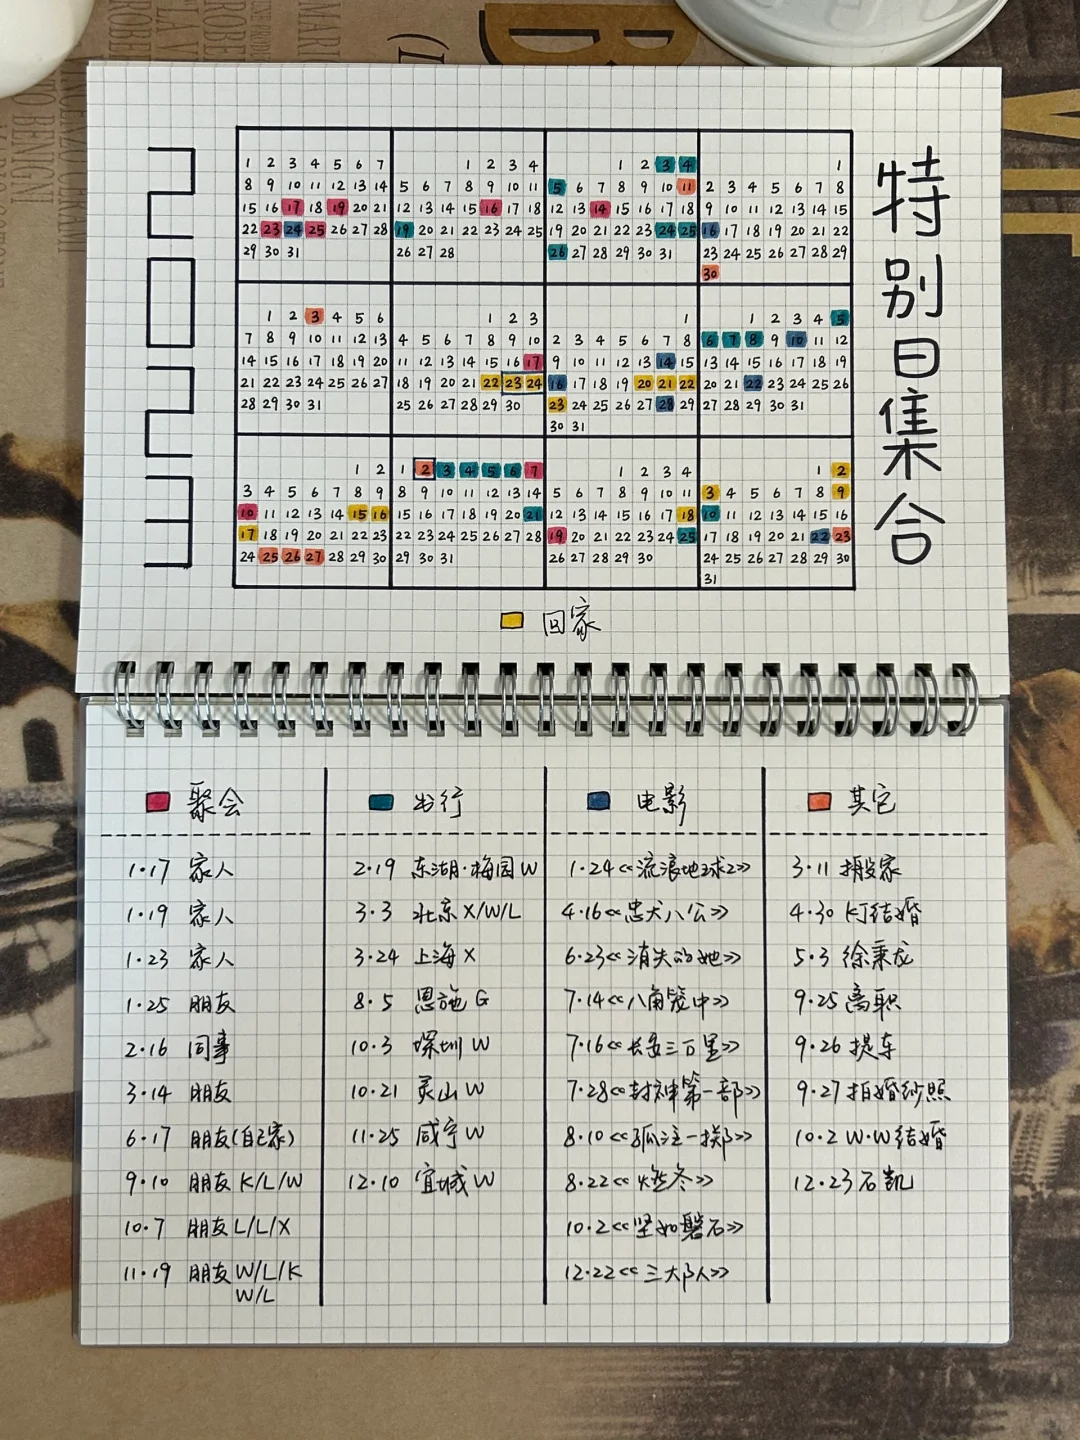 2023
特别日集合
1 2 3 4 5 6 7
8 9 10 11 12 13 14
15 16 17 18 19 20 21
22 23 24 25 26 27 28
29 30 31
1 2 3 4
5 6 7 8 9 10 11
12 13 14 15 16 17 18
19 20 21 22 23 24 25
26 27 28
1 2 3 4
5 6 7 8 9 10 11
12 13 14 15 16 17 18
19 20 21 22 23 24 25
26 27 28 29 30 31
1
2 3 4 5 6 7 8
9 10 11 12 13 14 15
16 17 18 19 20 21 22
23 24 25 26 27 28 29
30
1 2 3 4 5 6
7 8 9 10 11 12 13
14 15 16 17 18 19 20
21 22 23 24 25 26 27
28 29 30 31
1 2 3
4 5 6 7 8 9 10
11 12 13 14 15 16 17
18 19 20 21 22 23 24
25 26 27 28 29 30
1
2 3 4 5 6 7 8
9 10 11 12 13 14 15
16 17 18 19 20 21 22
23 24 25 26 27 28 29
30 31
1 2 3 4 5
6 7 8 9 10 11 12
13 14 15 16 17 18 19
20 21 22 23 24 25 26
27 28 29 30 31
1 2
3 4 5 6 7 8 9
10 11 12 13 14 15 16
17 18 19 20 21 22 23
24 25 26 27 28 29 30
1 2 3 4 5 6 7
8 9 10 11 12 13 14
15 16 17 18 19 20 21
22 23 24 25 26 27 28
29 30 31
1 2 3 4
5 6 7 8 9 10 11
12 13 14 15 16 17 18
19 20 21 22 23 24 25
26 27 28 29 30
1 2
3 4 5 6 7 8 9
10 11 12 13 14 15 16
17 18 19 20 21 22 23
24 25 26 27 28 29 30
31
回家
聚会
1·17 家人
1·19 家人
1·23 家人
1·25 朋友
2·16 同事
3·14 朋友
6·17 朋友(自己家)
9·10 朋友 K/L/W
10·7 朋友 L/L/X
11·19 朋友 W/L/K
W/L
出行
2·19 东湖·梅园 W
3·3 北京 X/W/L
3·24 上海 X
8·5 恩施 G
10·3 深圳 W
10·21 灵山 W
11·25 咸宁 W
12·10 宜城 W
电影
1·24《流浪地球2》
4·16《忠犬八公》
6·23《消失的她》
7·14《八角笼中》
7·16《长安三万里》
7·28《封神第一部》
8·10《孤注一掷》
8·22《燃冬》
10·2《坚如磐石》
12·22《三大队》
其它
3·11 搬家
4·30 KJ结婚
5·3 徐秉龙
9·25 离职
9·26 提车
9·27 拍婚纱照
10·2 W·W结婚
12·23 石凯